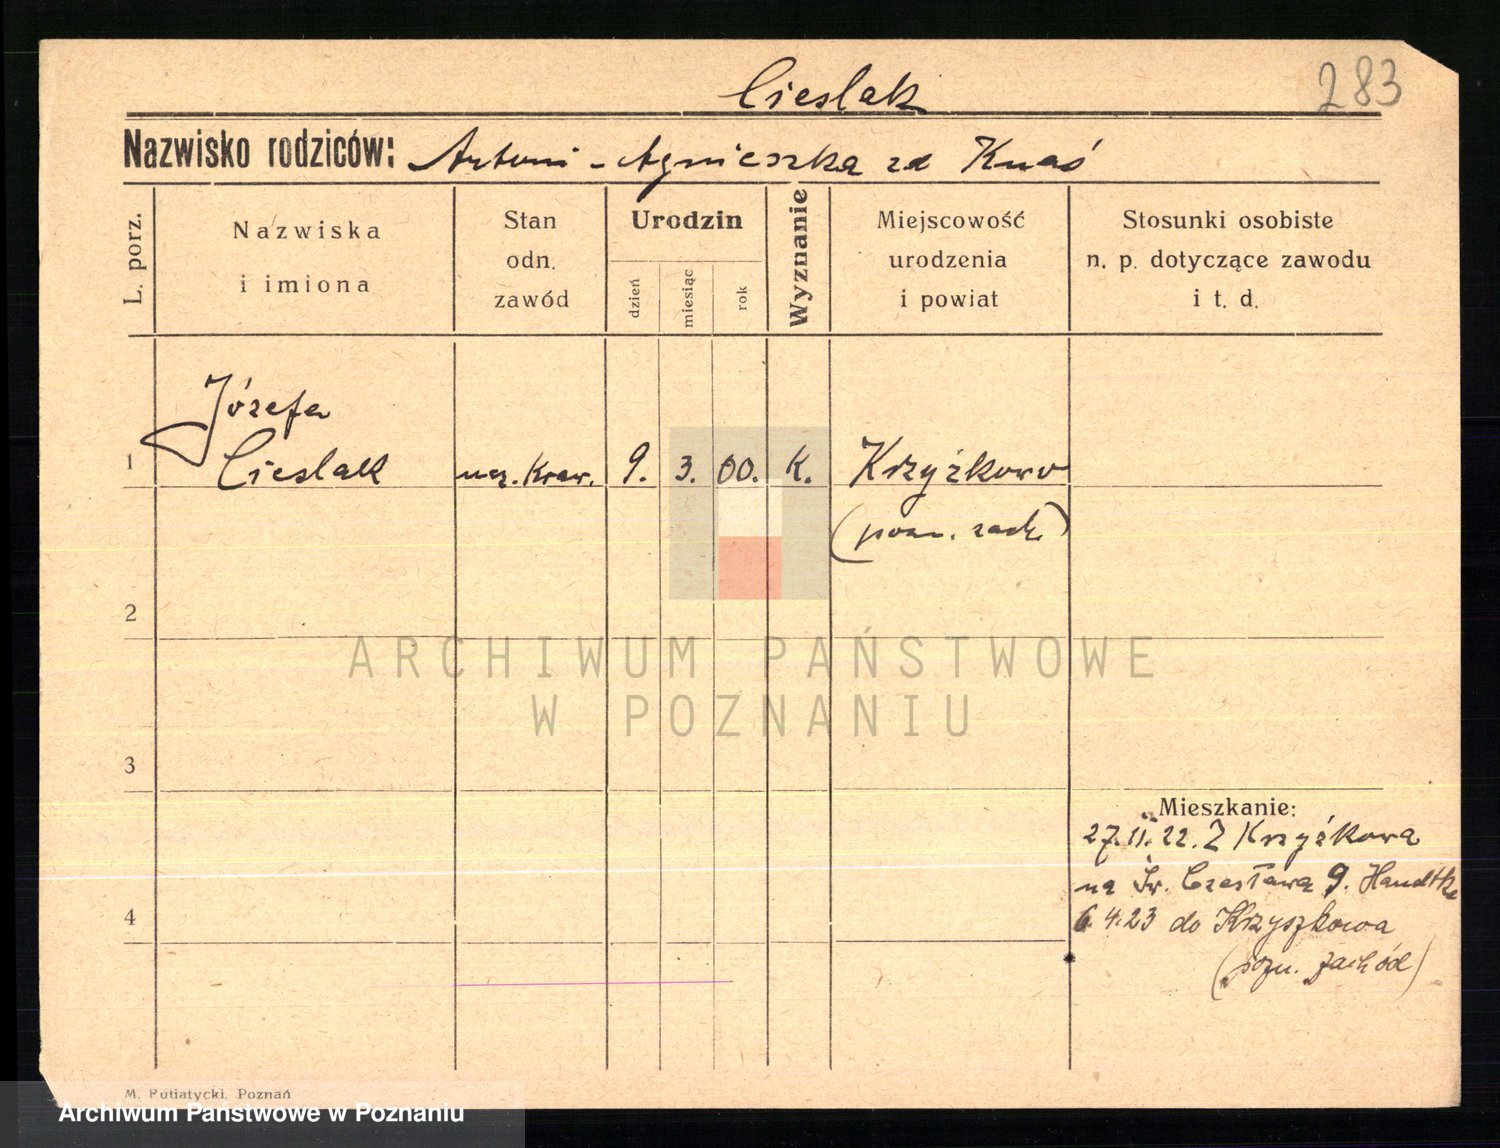 Cieslak
283
Nazwisko rodziców: Antoni - Agnieszka zd Knaś
L. porz.
Nazwiska
i imiona
Stan
odn.
zawód
Urodzin
dzień
miesiąc
rok
Wyznanie
Miejscowość
urodzenia
i powiat
Stosunki osobiste
n. p. dotyczące zawodu
i t. d.
Józefa
1 Cieslak ucz. Kraw. 9. 3. 00. K. Krzyżkowo
(pozn. zach)
2
ARCHIWUM PAŃSTWOWE
W POZNANIU
3
Mieszkanie:
27.II.22. Z Krzyżkowa
na Św. Czesława 9. Handtke
4
6.4.23 do Krzyszkowa
(pozn. zachód)
M. Putiatycki, Poznań
Archiwum Państwowe w Poznaniu